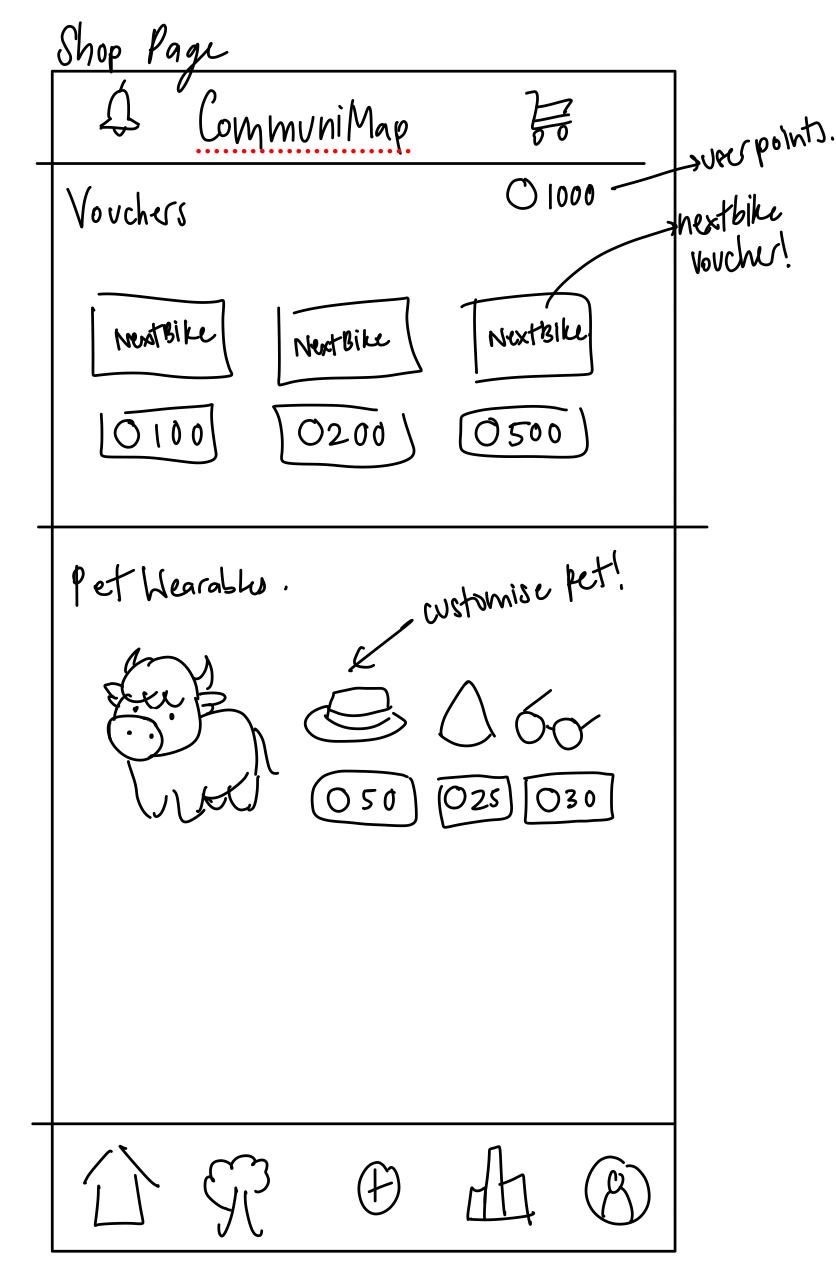 Shop Page
CommuniMap
Vouchers
1000
user points.
nextbike
voucher!
NextBike
NextBike
NextBike
100
200
500
Pet Wearables.
customise pet!
50
25
30